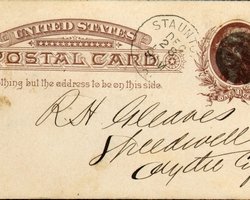 UNITED STATES
POSTAL CARD
nothing but the address to be on this side.
STAUNT
R H Gleaves
Speedwell
Wythe